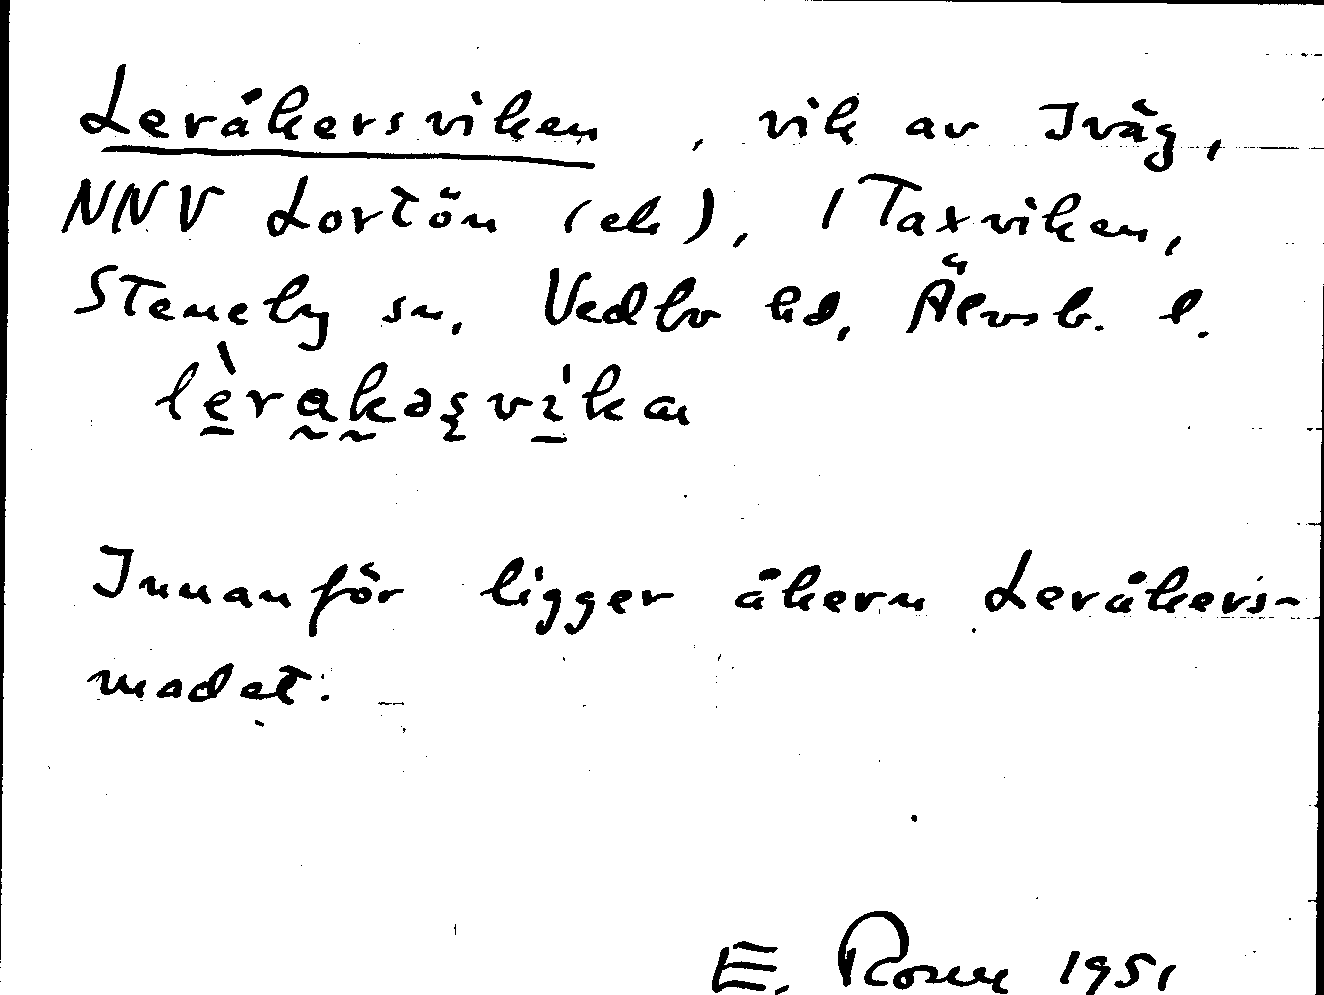 Leråkersviken, vik av Iväg,
NNV Lortön (ek), i Taxviken,
Steneby sn, Vedbo hd, Älvsb. l.
lèrakəsvikan
Innanför ligger åkern Leråkers-
madet.
E. Rosen 1951